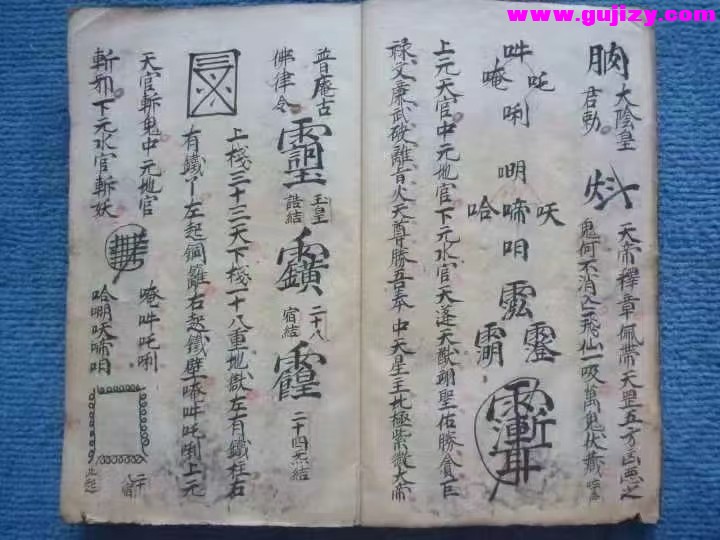 www.gujizy.com
太陰皇
君勅
天帝釋章佩帶天罡五方凶惡之
鬼何不消亡飛仙一吸萬鬼伏藏
吽
唵 吒
唎
哈 啼 吠
上元天官中元地官下元水官天蓬天猷翊聖佑勝貪巨
禄文廉武破離宮火天尊勝吾奉中天星主北極紫微大帝
普庵古
佛律令
玉皇
誥結
二十八
宿結
二十四炁結
上棧三十三天下棧一十八重地獄左有鐵柱右
有鐵 左起銅籬右起鐵壁唵吽吒唎上元
天官斬鬼中元地官
斬邪下元水官斬妖
唵吽吒唎
哈吠啼